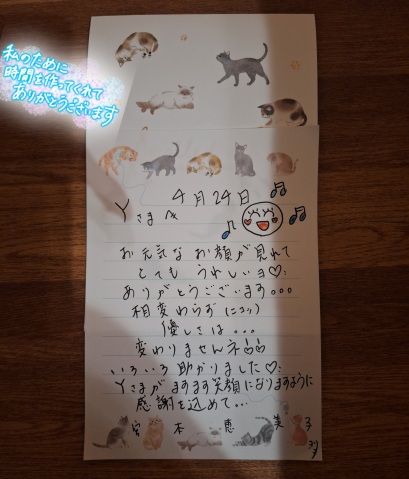 私のために
時間を作ってくれて
ありがとうございます
4月24日
Yさまへ
お元気なお顔が見れて
とても うれしいヨ♡
ありがとうございます。。。
相変わらず(ニコッ)
優しさは・・・
変わりませんネ!!
いろいろ助かりました♡
Yさまがますます笑顔になりますように
感謝を込めて…
木 恵 美子